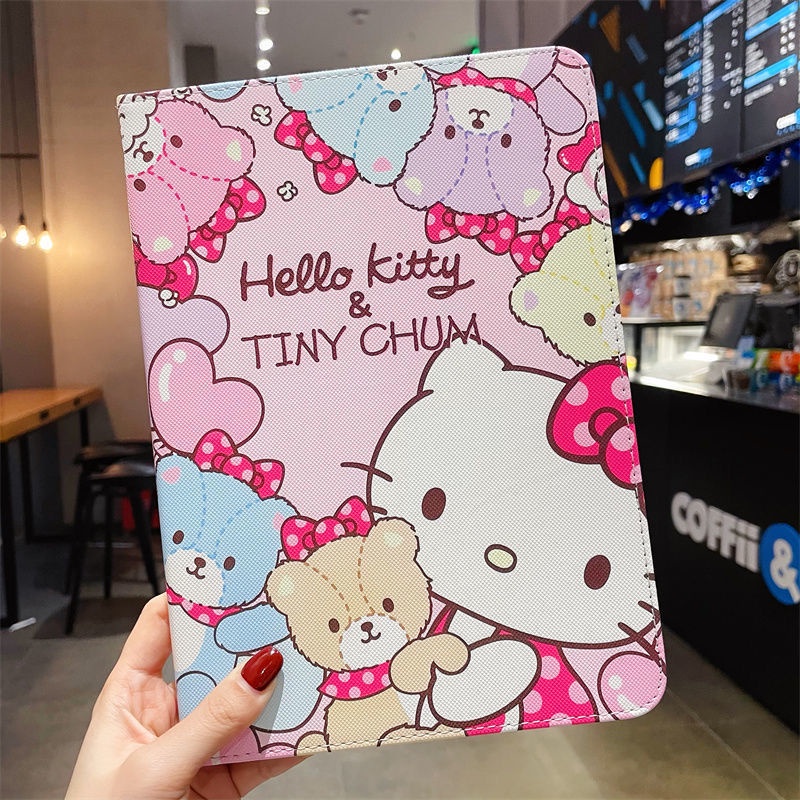 Hello Kitty
&
TINY CHUM
COFFii &